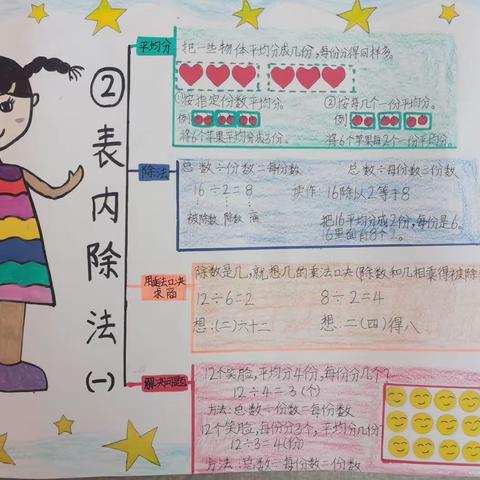 ②表内除法(一)
平均分
把一些物体平均分成几份,每份分得同样多。
①按指定份数平均分。
②按每几个一份平均分。
例
例
将6个苹果平均分成3份。
将6个苹果每2个一份平均分。
除法
总数÷份数=每份数
总数÷每份数=份数
16÷2=8
读作:16除以2等于8
被除数 除数 商
把16平均分成2份,每份是6。
16里面有8个2。
用乘法口决求商
除数是几,就想几的乘法口决(除数和几相乘得被除
12÷6=2
8÷2=4
想:(二)六十二
想:二(四)得八
解决问题
12个笑脸,平均分4份,每份分几个?
12÷4=3(个)
方法:总数÷份数=每份数
12个笑脸,每份分3个,平均分几份?
12÷3=4(份)
方法:总数÷每份数=份数